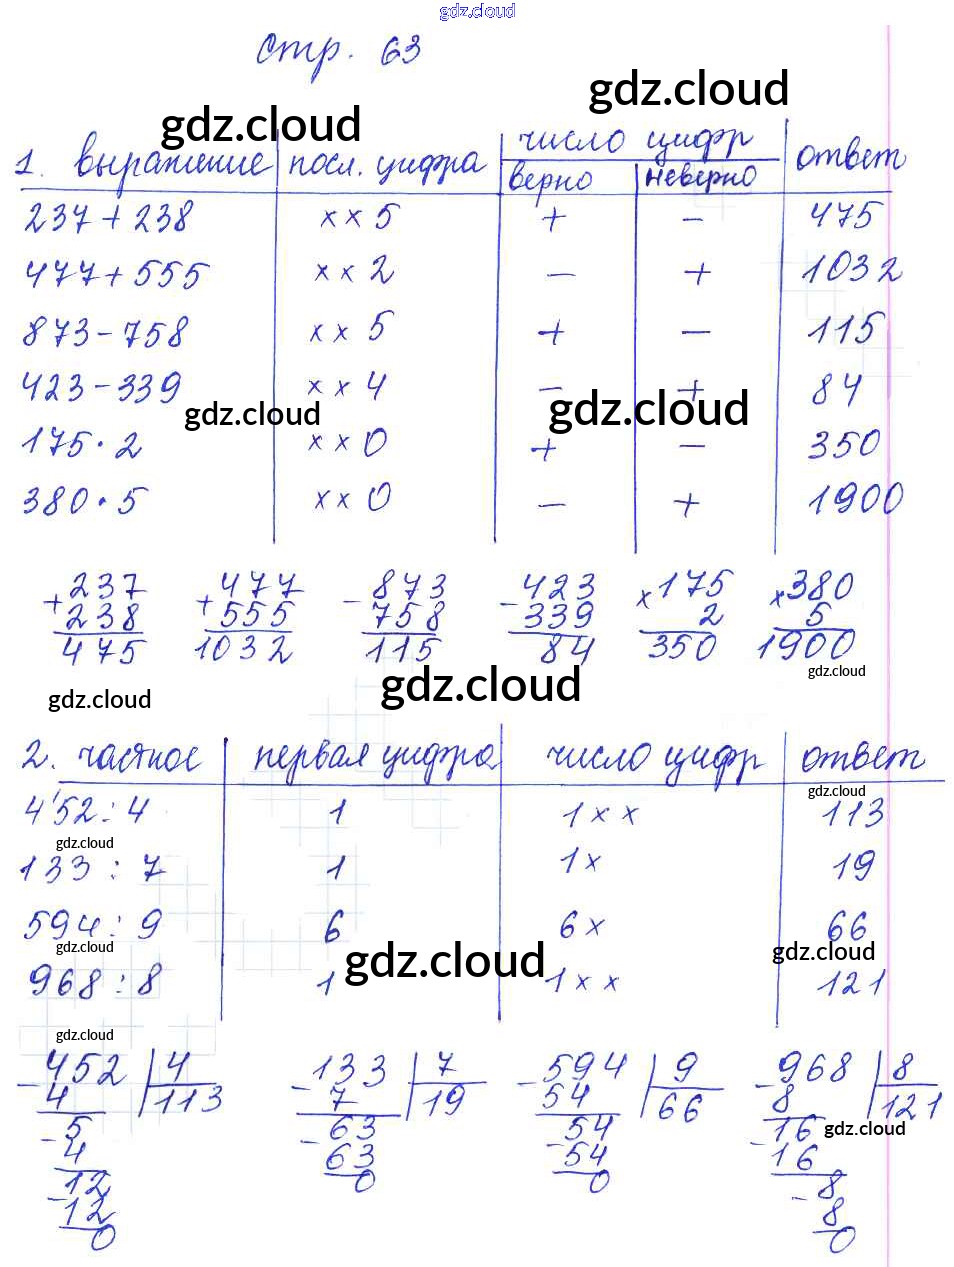 gdz.cloud
стр. 63
gdz.cloud
gdz.cloud
1. выражение посл. цифра число цифр ответ
верно неверно
237 + 238 x x 5 + - 475
477 + 555 x x 2 - + 1032
873 - 758 x x 5 + - 115
423 - 339 x x 4 - + 84
gdz.cloud gdz.cloud
175 · 2 x x 0 + - 350
380 · 5 x x 0 - + 1900
+ 237 + 477 - 873 - 423 x 175 x 380
238 555 758 339 2 5
475 1032 115 84 350 1900
gdz.cloud gdz.cloud gdz.cloud
2. частное первая цифра число цифр ответ
gdz.cloud
4'52 : 4 1 1 x x 113
gdz.cloud
133 : 7 1 1 x 19
594 : 9 6 6 x 66
gdz.cloud gdz.cloud gdz.cloud
968 : 8 1 1 x x 121
gdz.cloud
- 452 | 4 - 133 | 7 - 594 | 9 - 968 | 8
4 113 7 19 54 66 8 121
- 5 - 63 - 54 - 16 gdz.cloud
4 63 54 16
- 12 0 0 - 8
12 8
0 0